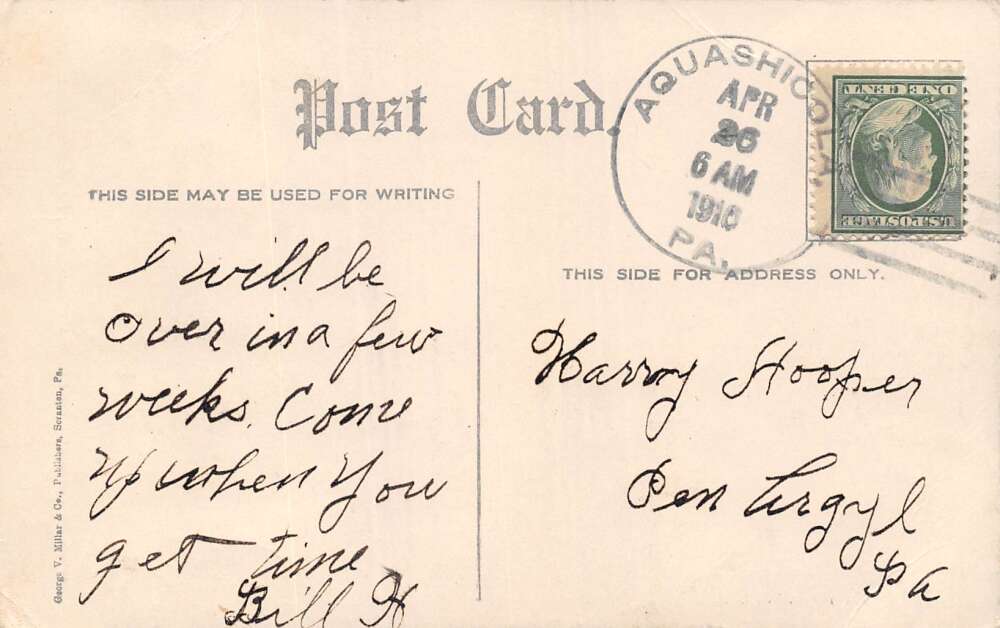 Post Card.
THIS SIDE MAY BE USED FOR WRITING
THIS SIDE FOR ADDRESS ONLY.
AQUASHICOLA
APR
26
6 AM
1910
PA.
ONE CENT
U.S. POSTAGE
I will be
Over in a few
weeks. Come
up when you
get time
Bill H
Harry Hooper
Pen Argyl
Pa
George V. Millar & Co., Publishers, Scranton, Pa.